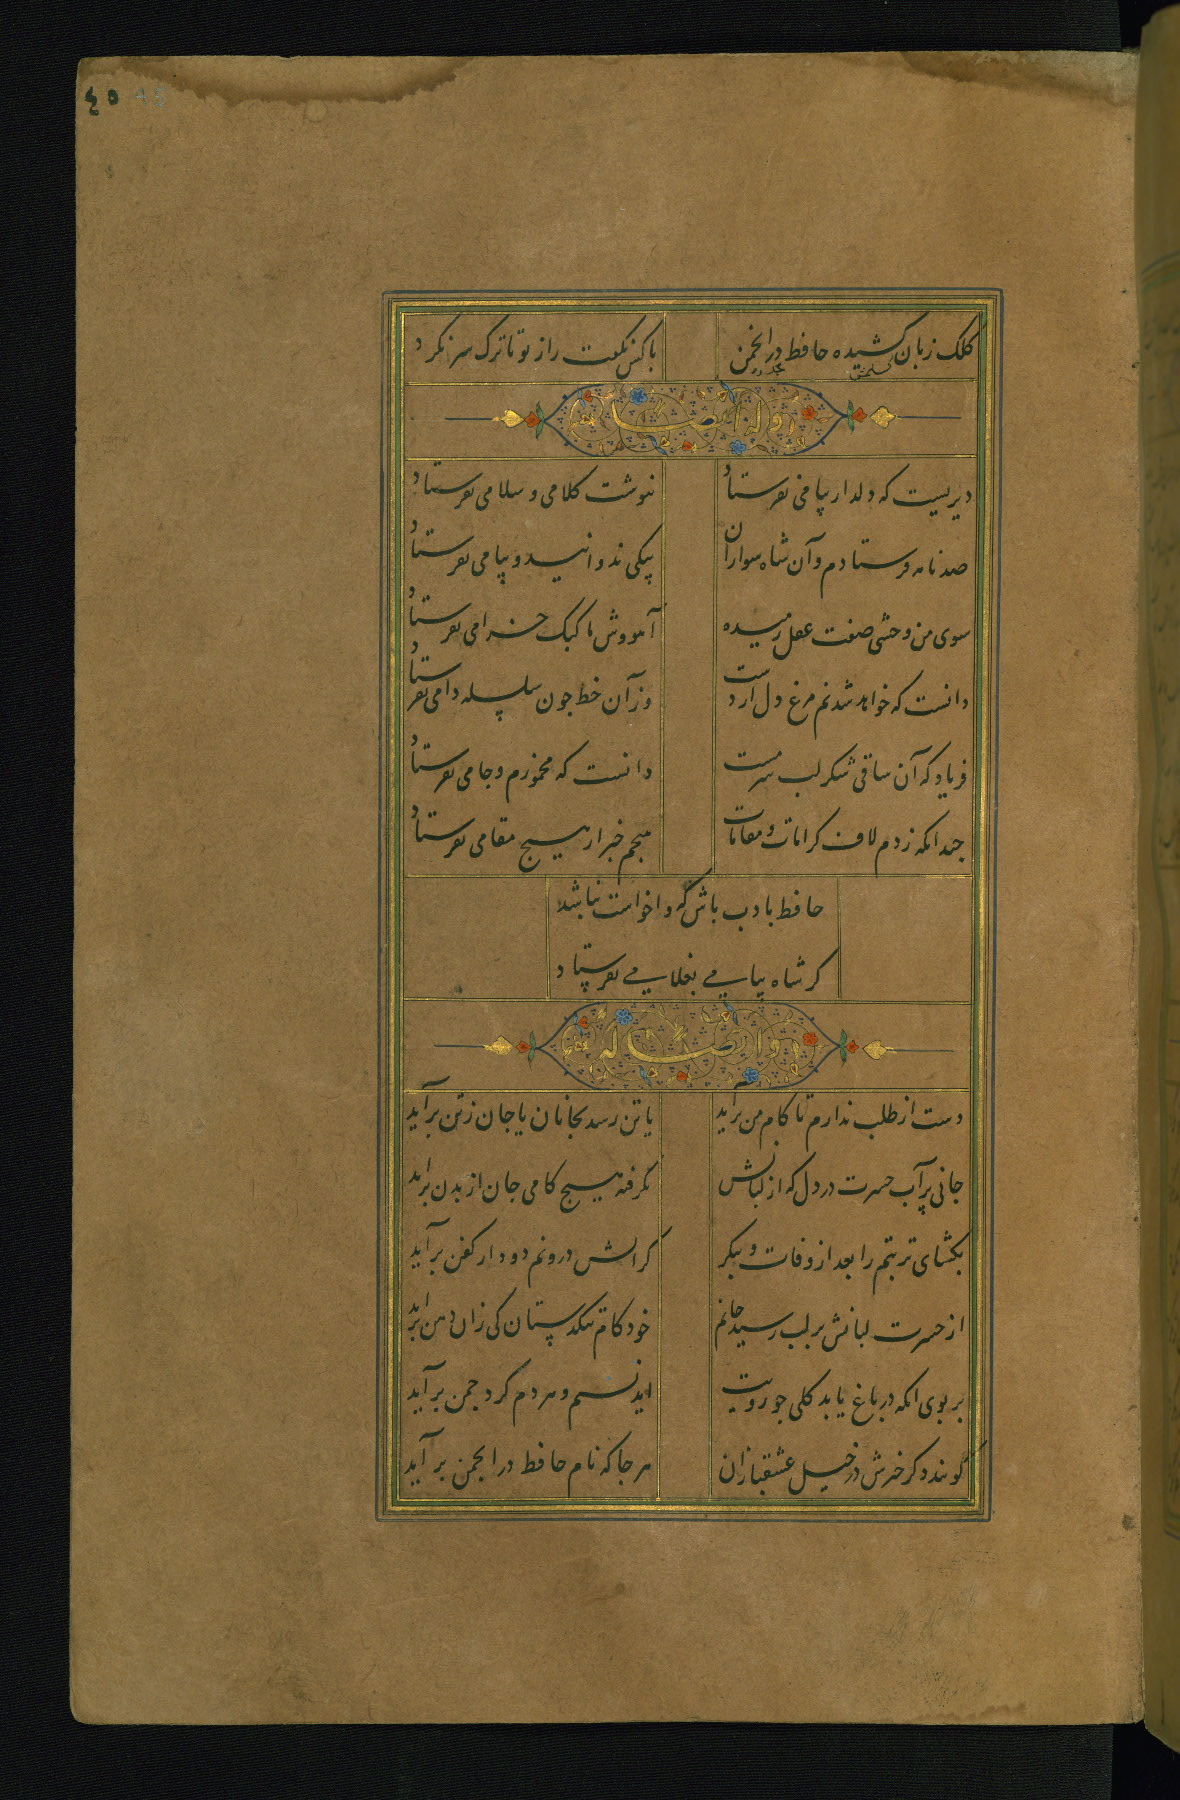 ٤٥
کلک زبان کشیده حافظ در انجمن باکس نکفت راز تو تا ترک سر نکرد
وله ایضا
دیریست که دلدار پیامی نفرستاد ننوشت کلامی و سلامی نفرستاد
صد نامه فرستادم و آن شاه سواران پیکی ندوانید و پیامی نفرستاد
سوی من وحشی صفت عقل رمیده آهوروش کبک خرامی نفرستاد
دانست که خواهد شدنم مرغ دل از دست وز آن خط چون سلسله دامی نفرستاد
فریاد که آن ساقی شکر لب سرمست دانست که مخمورم و جامی نفرستاد
چندانکه زدم لاف کرامات و مقامات هیچم خبر از هیچ مقامی نفرستاد
حافظ بادب باش که واخواست نباشد
کر شاه پیامی بغلامی نفرستاد
وایضا له
دست از طلب ندارم تا کام من برآید یا تن رسد بجانان یا جان ز تن برآید
جانی پر آب حسرت در دل که از لبانش نکرفته هیچ کامی جان از بدن برآید
بکشای تربتم را بعد از وفات و بنکر کز آتش درونم دود از کفن برآید
از حسرت لبانش بر لب رسید جانم خود کام تنکدستان کی زان دهن برآید
بر بوی انکه در باغ یابد کلی چو رویت اید نسیم و هر دم کرد چمن برآید
کویند ذکر خیرش در خیل عشقبازان هر جا که نام حافظ در انجمن برآید